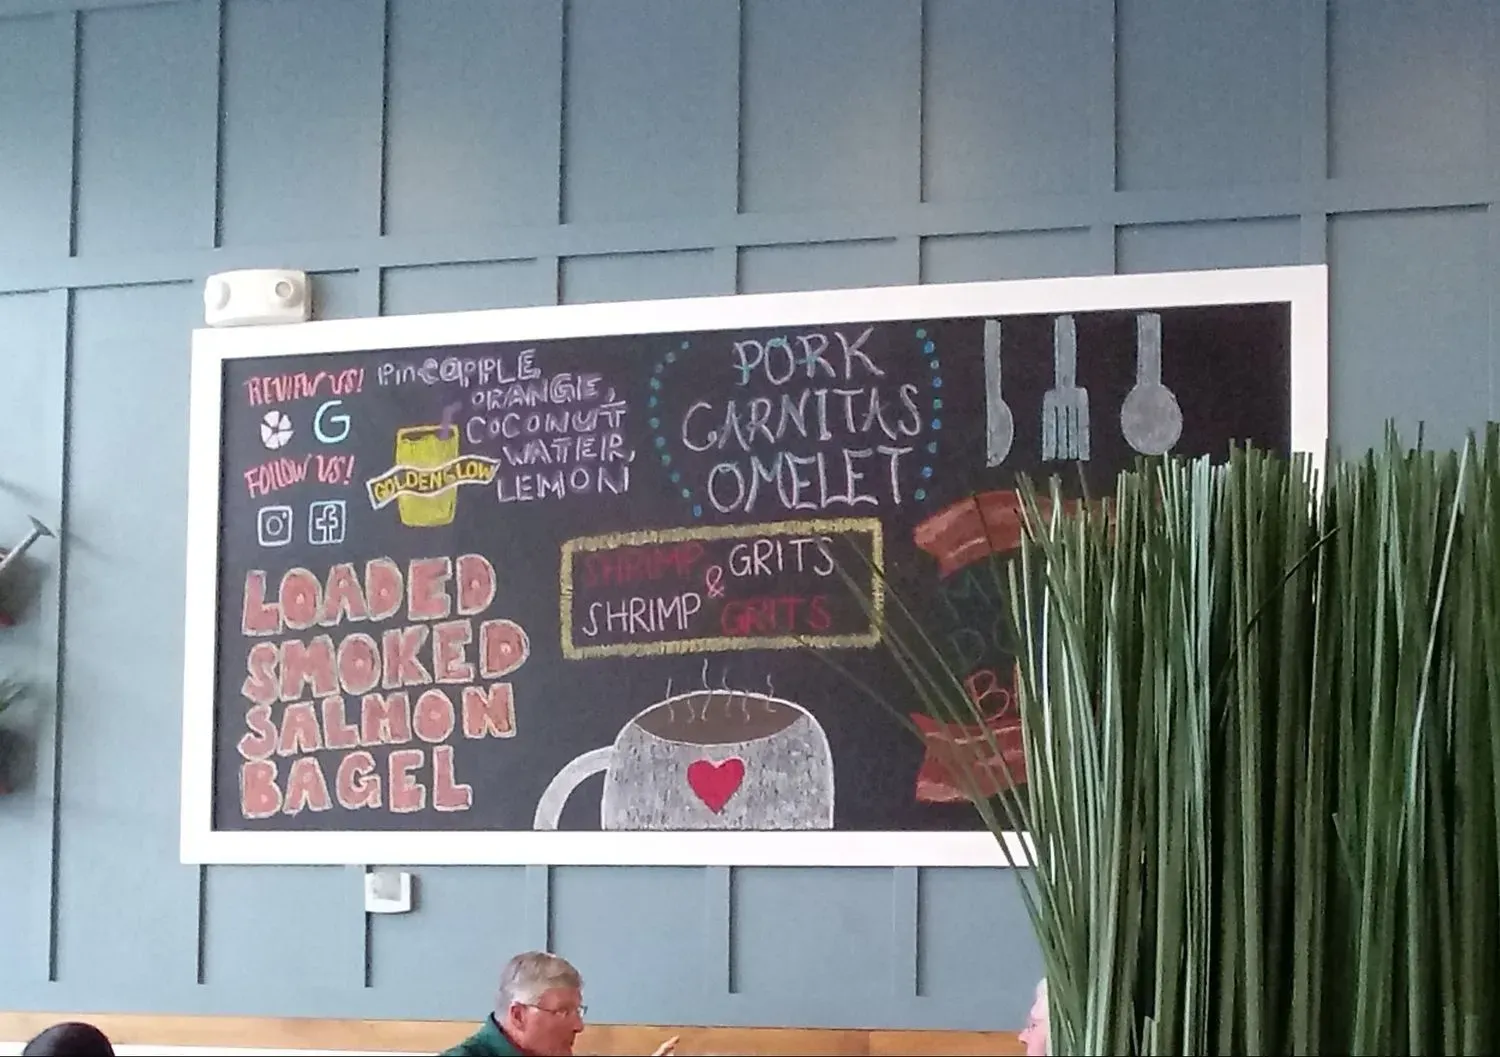 REVIEW US!
G
FOLLOW US!
PINEAPPLE,
ORANGE,
COCONUT
WATER,
LEMON
GOLDEN GLOW
PORK
CARNITAS
OMELET
LOADED
SMOKED
SALMON
BAGEL
SHRIMP & GRITS
SHRIMP GRITS